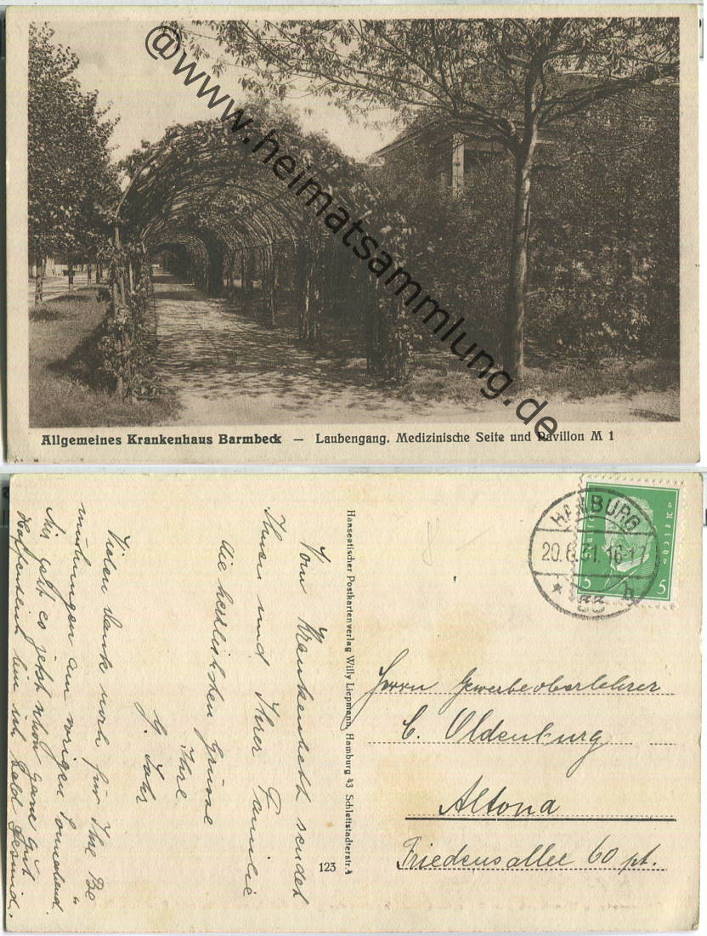 @www.heimatsammlung.de
Allgemeines Krankenhaus Barmbeck — Laubengang, Medizinische Seite und Pavillon M 1
HAMBURG
20.6.31.16-17
* 33 b
5 5
Hanseatischer Postkartenverlag Willy Liepmann, Hamburg 43 Schlettstadterstr. 4
123
Herrn Gewerbeoberlehrer
C. Oldenburg
Altona
Friedensallee 60 pt.
Vom Krankenbett sendet
Ihnen und Ihrer Familie
die herzlichsten Grüsse
Ihre
G.
Vielen Dank noch für Ihre Be
mühungen am vorigen Sonnabend.
Mir geht es jetzt schon ganz gut
Hoffentlich bin ich bald gesund.